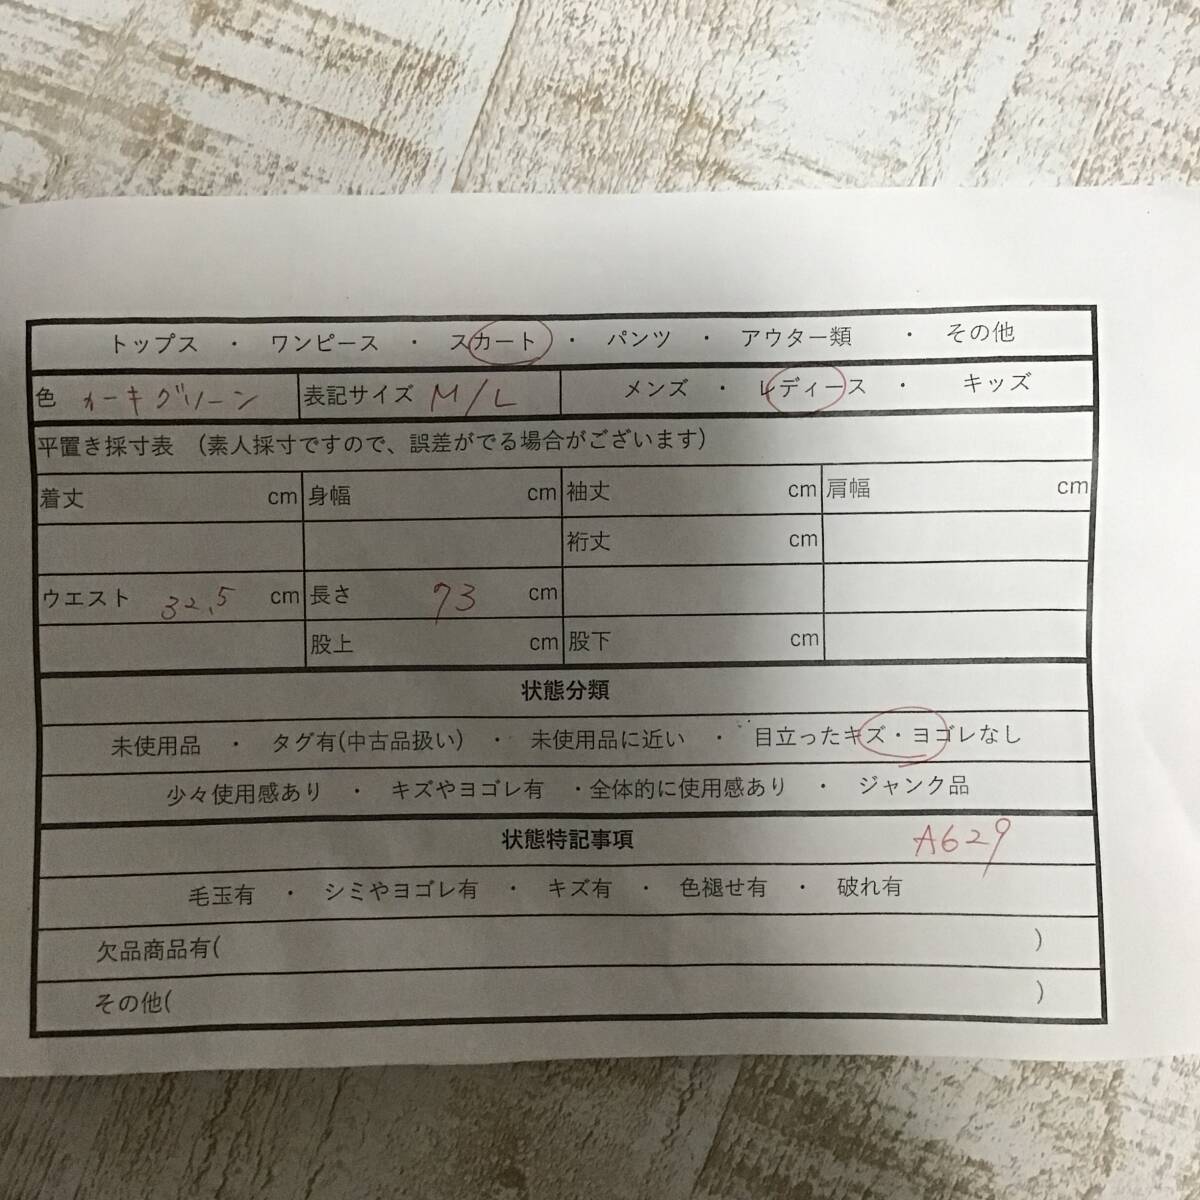 トップス ・ ワンピース ・ スカート ・ パンツ ・ アウター類 ・ その他
色 カーキグリーン 表記サイズ M/L メンズ ・ レディース ・ キッズ
平置き採寸表 (素人採寸ですので、誤差がでる場合がございます)
着丈 cm 身幅 cm 袖丈 cm 肩幅 cm
裄丈 cm
ウエスト 32.5 cm 長さ 73 cm
股上 cm 股下 cm
状態分類
未使用品 ・ タグ有(中古品扱い) ・ 未使用品に近い ・ 目立ったキズ・ヨゴレなし
少々使用感あり ・ キズやヨゴレ有 ・全体的に使用感あり ・ ジャンク品
状態特記事項 A629
毛玉有 ・ シミやヨゴレ有 ・ キズ有 ・ 色褪せ有 ・ 破れ有
欠品商品有( )
その他( )